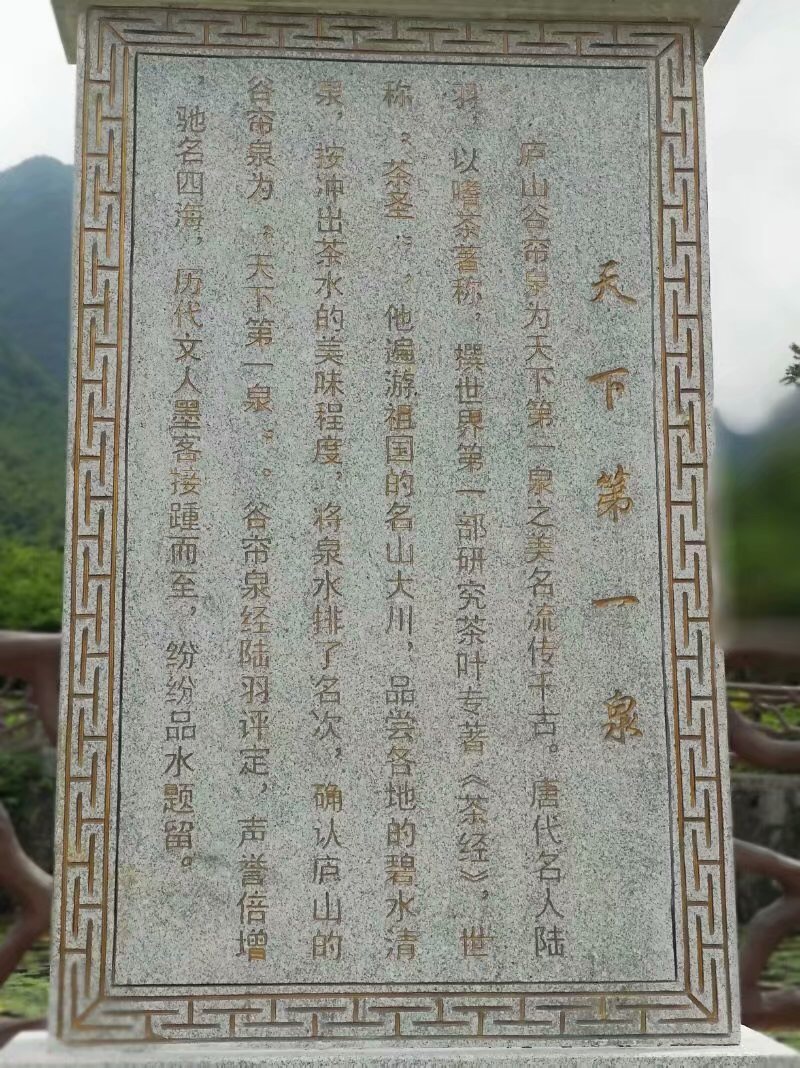 天下第一泉
庐山谷帘泉为天下第一泉之美名流传千古。唐代名人陆
羽，以嗜茶著称，撰世界第一部研究茶叶专著《茶经》，世
称“茶圣”，他遍游祖国的名山大川，品尝各地的碧水清
泉，按冲出茶水的美味程度，将泉水排了名次，确认庐山的
谷帘泉为“天下第一泉”。谷帘泉经陆羽评定，声誉倍增
，驰名四海，历代文人墨客接踵而至，纷纷品水题留。